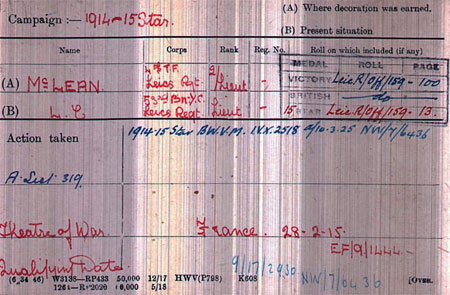 Campaign :— 1914-15 Star. (A) Where decoration was earned.
(B) Present situation
Name Corps Rank Reg. No. Roll on which included (if any)
MEDAL ROLL PAGE
(A) McLEAN. 4th T.F. Leics Regt. 2/Lieut - VICTORY Leic R/Off/159 - 100
BRITISH do
(B) L. C. Leics Regt. Lieut - 15 STAR Leic R/Off/159 - 13.
Action taken 1914-15 Star B.W.V.M. IVX. 2518 NW/7/6436
A. List 319.
Theatre of War. France. 28-2-15.
EF/9/1444
Qualifying Date 9/17/2930 NW/7/0436
(6 34 46) W3138—RP433 50,000 12/17 HWV(P798) K608 [OVER.
5/18